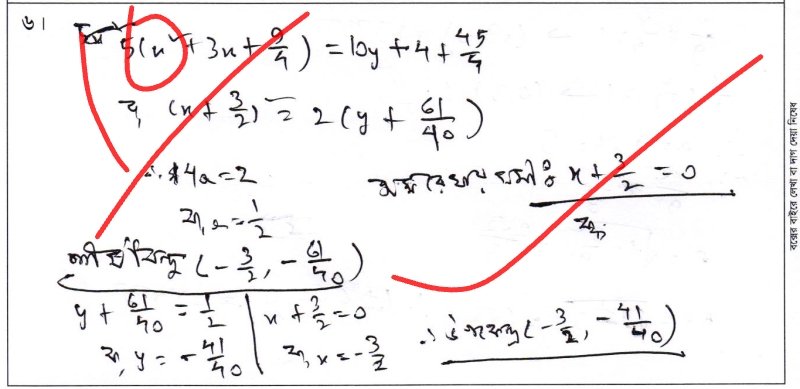 ৬।
5(x² + 3x + 9/4) = 10y + 4 + 45/4
বা, (x + 3/2)² = 2(y + 61/40)
∴ 4a = 2
বা, a = 1/2
অক্ষরেখার সমীঃ x + 3/2 = 0
বা,
শীর্ষবিন্দু (-3/2, -61/40)
y + 61/40 = 1/2
বা, y = -41/40
x + 3/2 = 0
বা, x = -3/2
∴ উপকেন্দ্র (-3/2, -41/40)
বক্সের বাইরে লেখা বা দাগ দেয়া নিষেধ